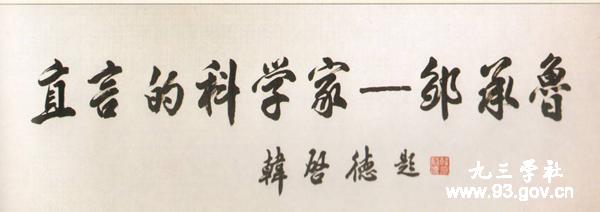 直言的科学家—邹承鲁
韓啓德 题
九三学社
www.93.gov.cn